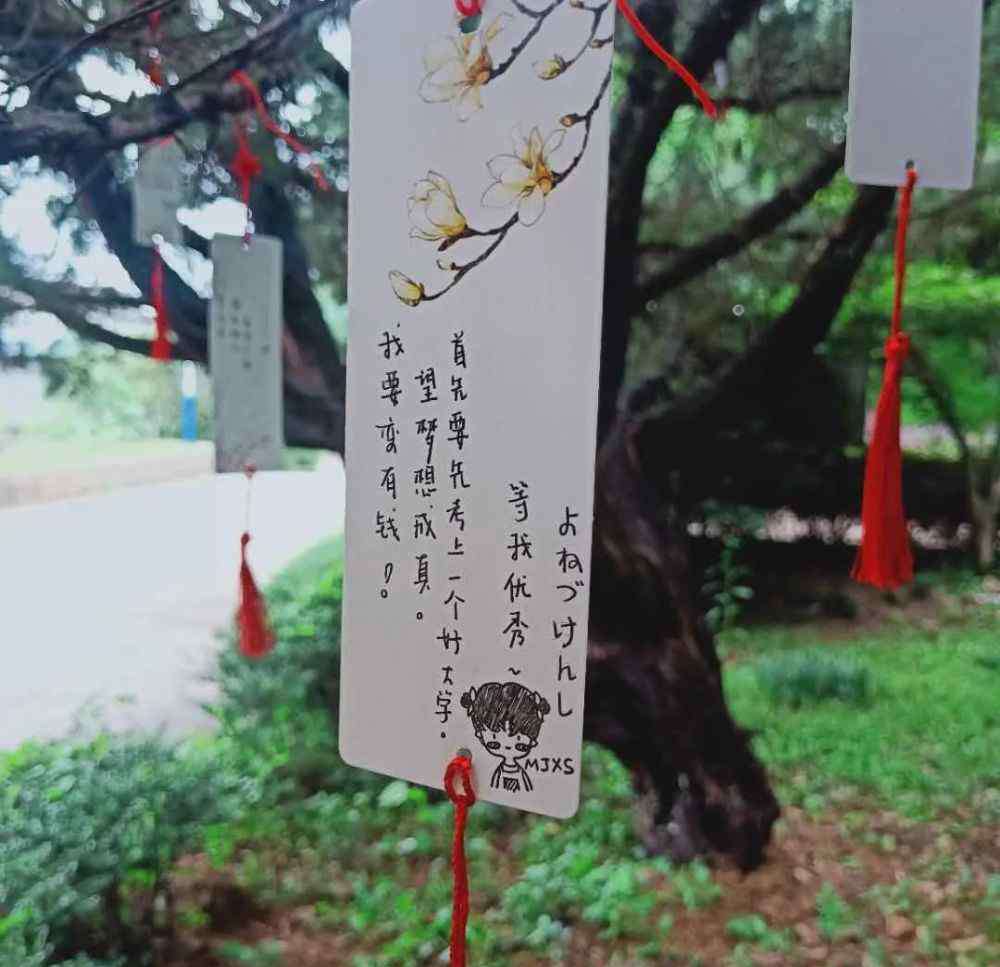 よねづけんし
等我优秀~
首先要先考上一个好大学。
望梦想成真。
我要变有钱!。
MJXS